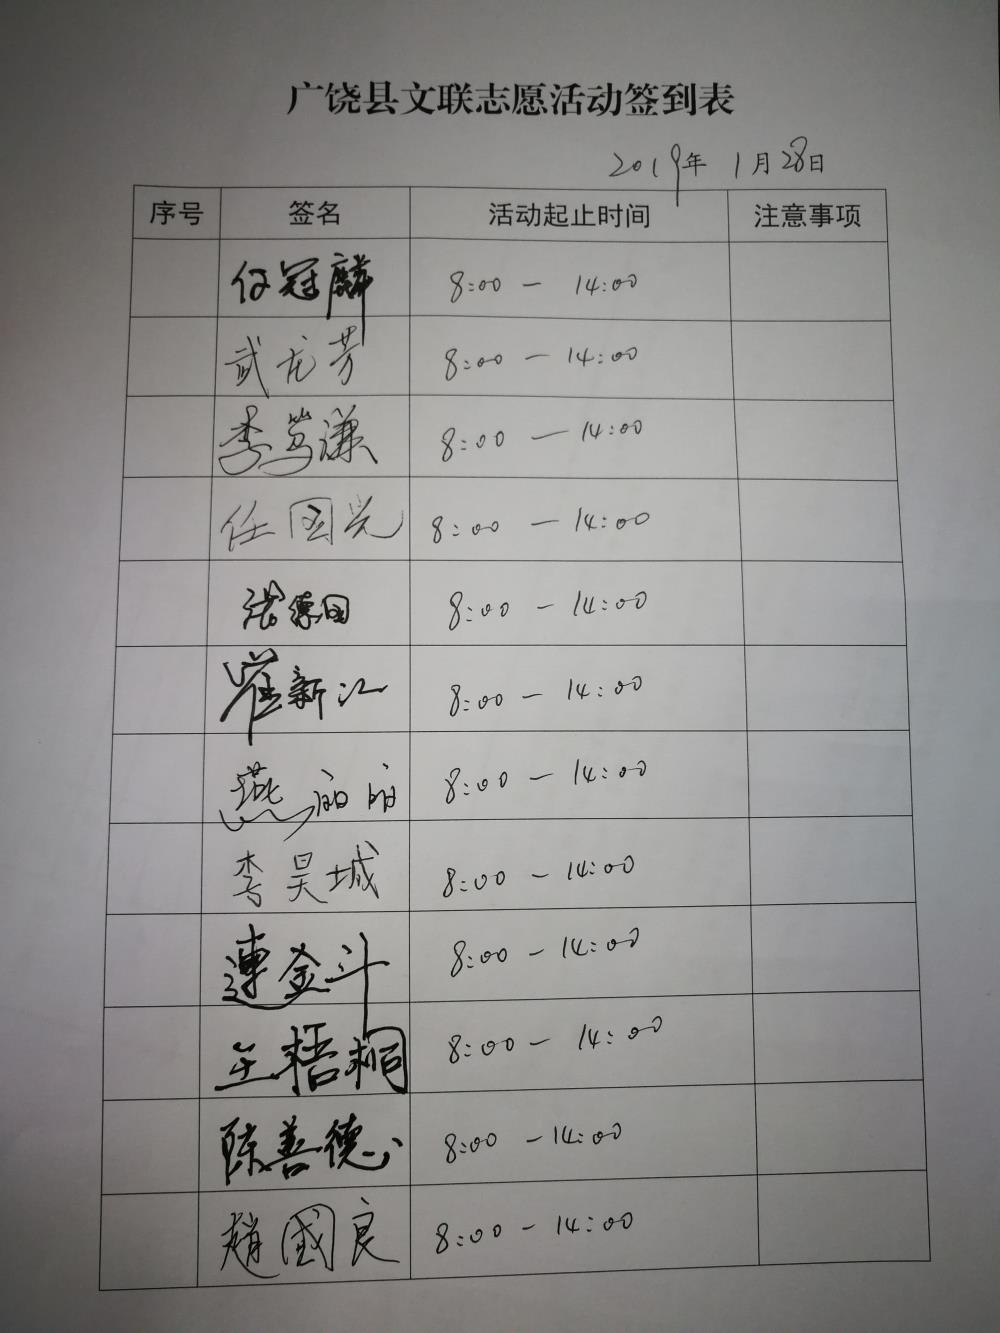 广饶县文联志愿活动签到表
2019年 1月28日
序号 签名 活动起止时间 注意事项
任冠麟 8:00 — 14:00
武龙芳 8:00 — 14:00
李笃谦 8:00 — 14:00
任国光 8:00 — 14:00
张德国 8:00 — 14:00
崔新江 8:00 — 14:00
燕丽丽 8:00 — 14:00
李昊城 8:00 — 14:00
連金斗 8:00 — 14:00
王梧桐 8:00 — 14:00
陈善德 8:00 — 14:00
趙國良 8:00 — 14:00